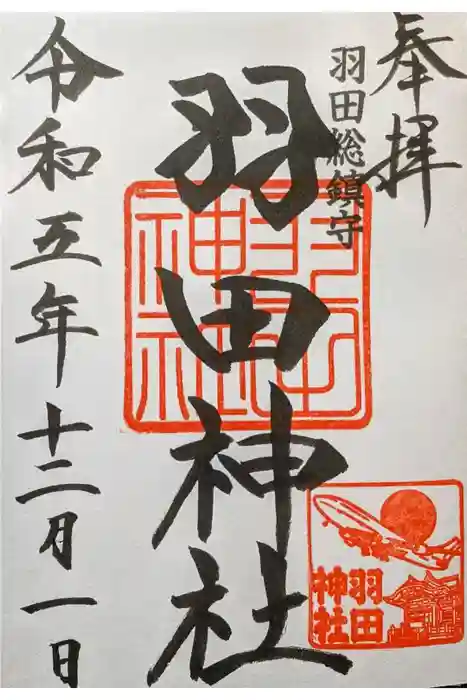 奉拝
羽田総鎮守
羽田神社
令和五年十二月一日
羽田
神社
羽田
神社